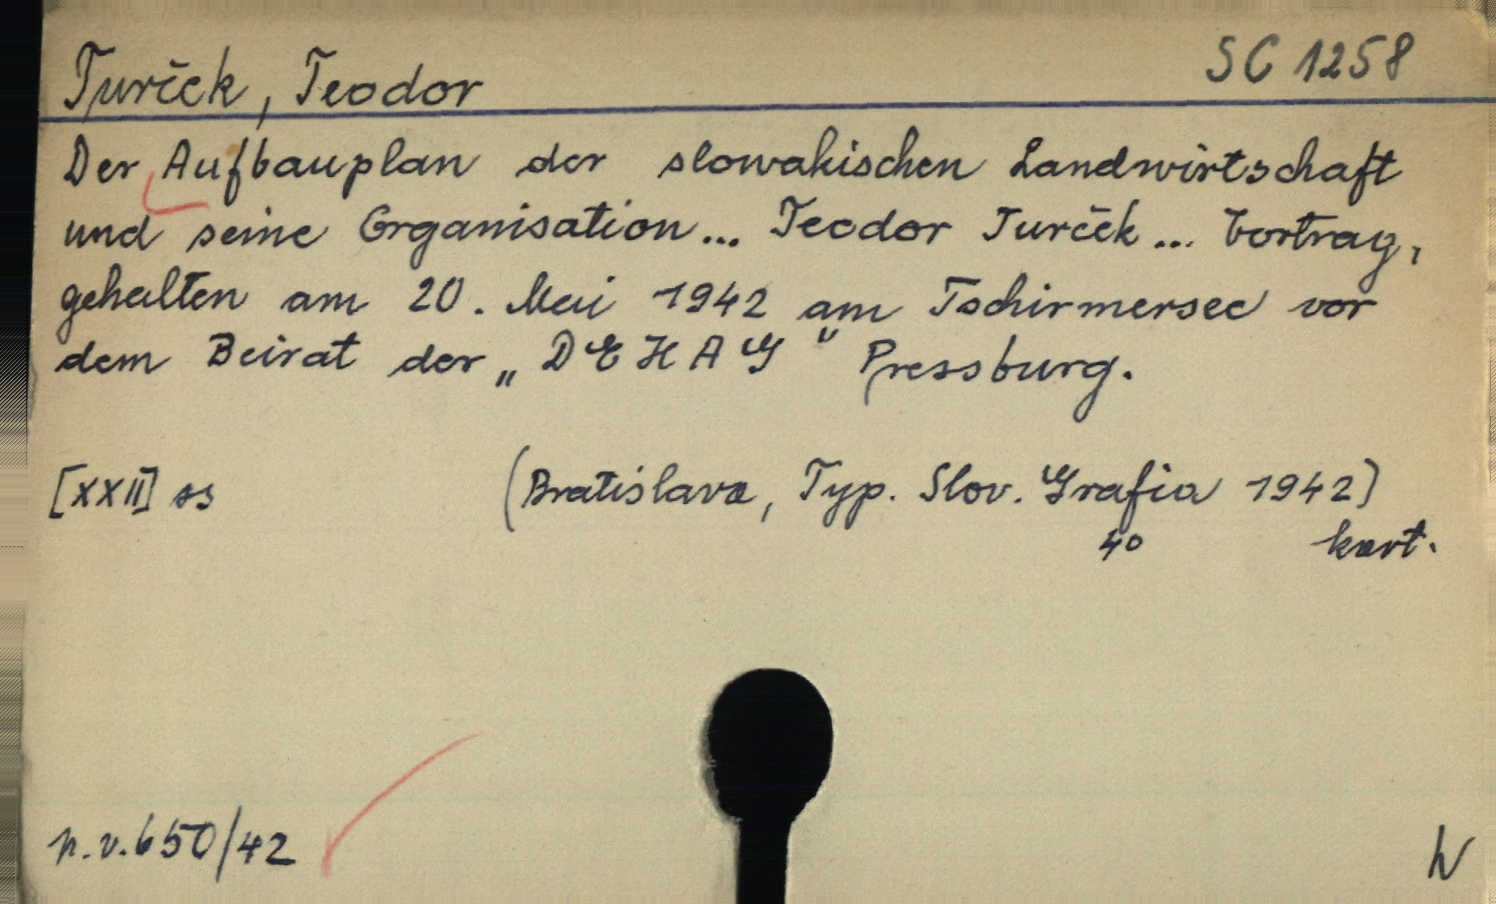 SC 1258
Turček, Teodor
Der Aufbauplan der slowakischen Landwirtschaft
und seine Organisation... Teodor Turček... Vortrag,
gehalten am 20. Mai 1942 am Tschirmersee vor
dem Beirat der „DEHAG" Pressburg.
[XXII] ss (Bratislava, Typ. Slov. Grafia 1942)
4° kart.
p.v. 650/42